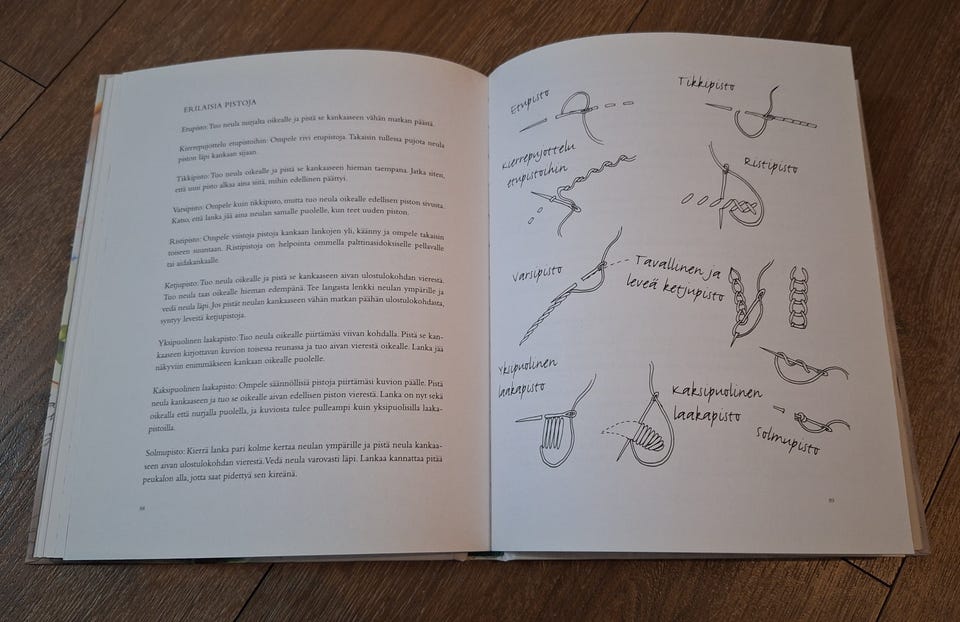 ERILAISIA PISTOJA
Etupisto: Tuo neula nurjalta oikealle ja pistä se kankaaseen vähän matkan päästä.
Kierrepujottelu etupistoihin: Ompele rivi etupistoja. Takaisin tullessa pujota neula
piston läpi kankaan sijaan.
Tikkipisto: Tuo neula oikealle ja pistä se kankaaseen hieman taempana. Jatka siten,
että uusi pisto alkaa aina siitä, mihin edellinen päättyi.
Varsipisto: Ompele kuin tikkipisto, mutta tuo neula oikealle edellisen piston sivusta.
Katso, että lanka jää aina neulan samalle puolelle, kun teet uuden piston.
Ristipisto: Ompele viistoja pistoja kankaan lankojen yli, käänny ja ompele takaisin
toiseen suuntaan. Ristipistoja on helpointa ommella palttinasidoksiselle pellavalle
tai aidakankaalle.
Ketjupisto: Tuo neula oikealle ja pistä se kankaaseen aivan ulostulokohdan vierestä.
Tuo neula taas oikealle hieman edempänä. Tee langasta lenkki neulan ympärille ja
vedä neula läpi. Jos pistät neulan kankaaseen vähän matkan päähän ulostulokohdasta,
syntyy leveitä ketjupistoja.
Yksipuolinen laakapisto: Tuo neula oikealle piirtämäsi viivan kohdalla. Pistä se kan-
kaaseen kirjottavan kuvion toisessa reunassa ja tuo aivan vierestä oikealle. Lanka jää
näkyviin enimmäkseen kankaan oikealle puolelle.
Kaksipuolinen laakapisto: Ompele säännöllisiä pistoja piirtämäsi kuvion päälle. Pistä
neula kankaaseen ja tuo se oikealle aivan edellisen piston vierestä. Lanka on nyt sekä
oikealla että nurjalla puolella, ja kuviosta tulee pulleampi kuin yksipuolisilla laaka-
pistoilla.
Solmupisto: Kierrä lanka pari kolme kertaa neulan ympärille ja pistä neula kankaa-
seen aivan ulostulokohdan vierestä. Vedä neula varovasti läpi. Lankaa kannattaa pitää
peukalon alla, jotta saat pidettyä sen kireänä.
88
Etupisto
Tikkipisto
Kierrepujottelu
etupistoihin
Ristipisto
Varsipisto
Tavallinen ja
leveä ketjupisto
Yksipuolinen
laakapisto
Kaksipuolinen
laakapisto
Solmupisto
89